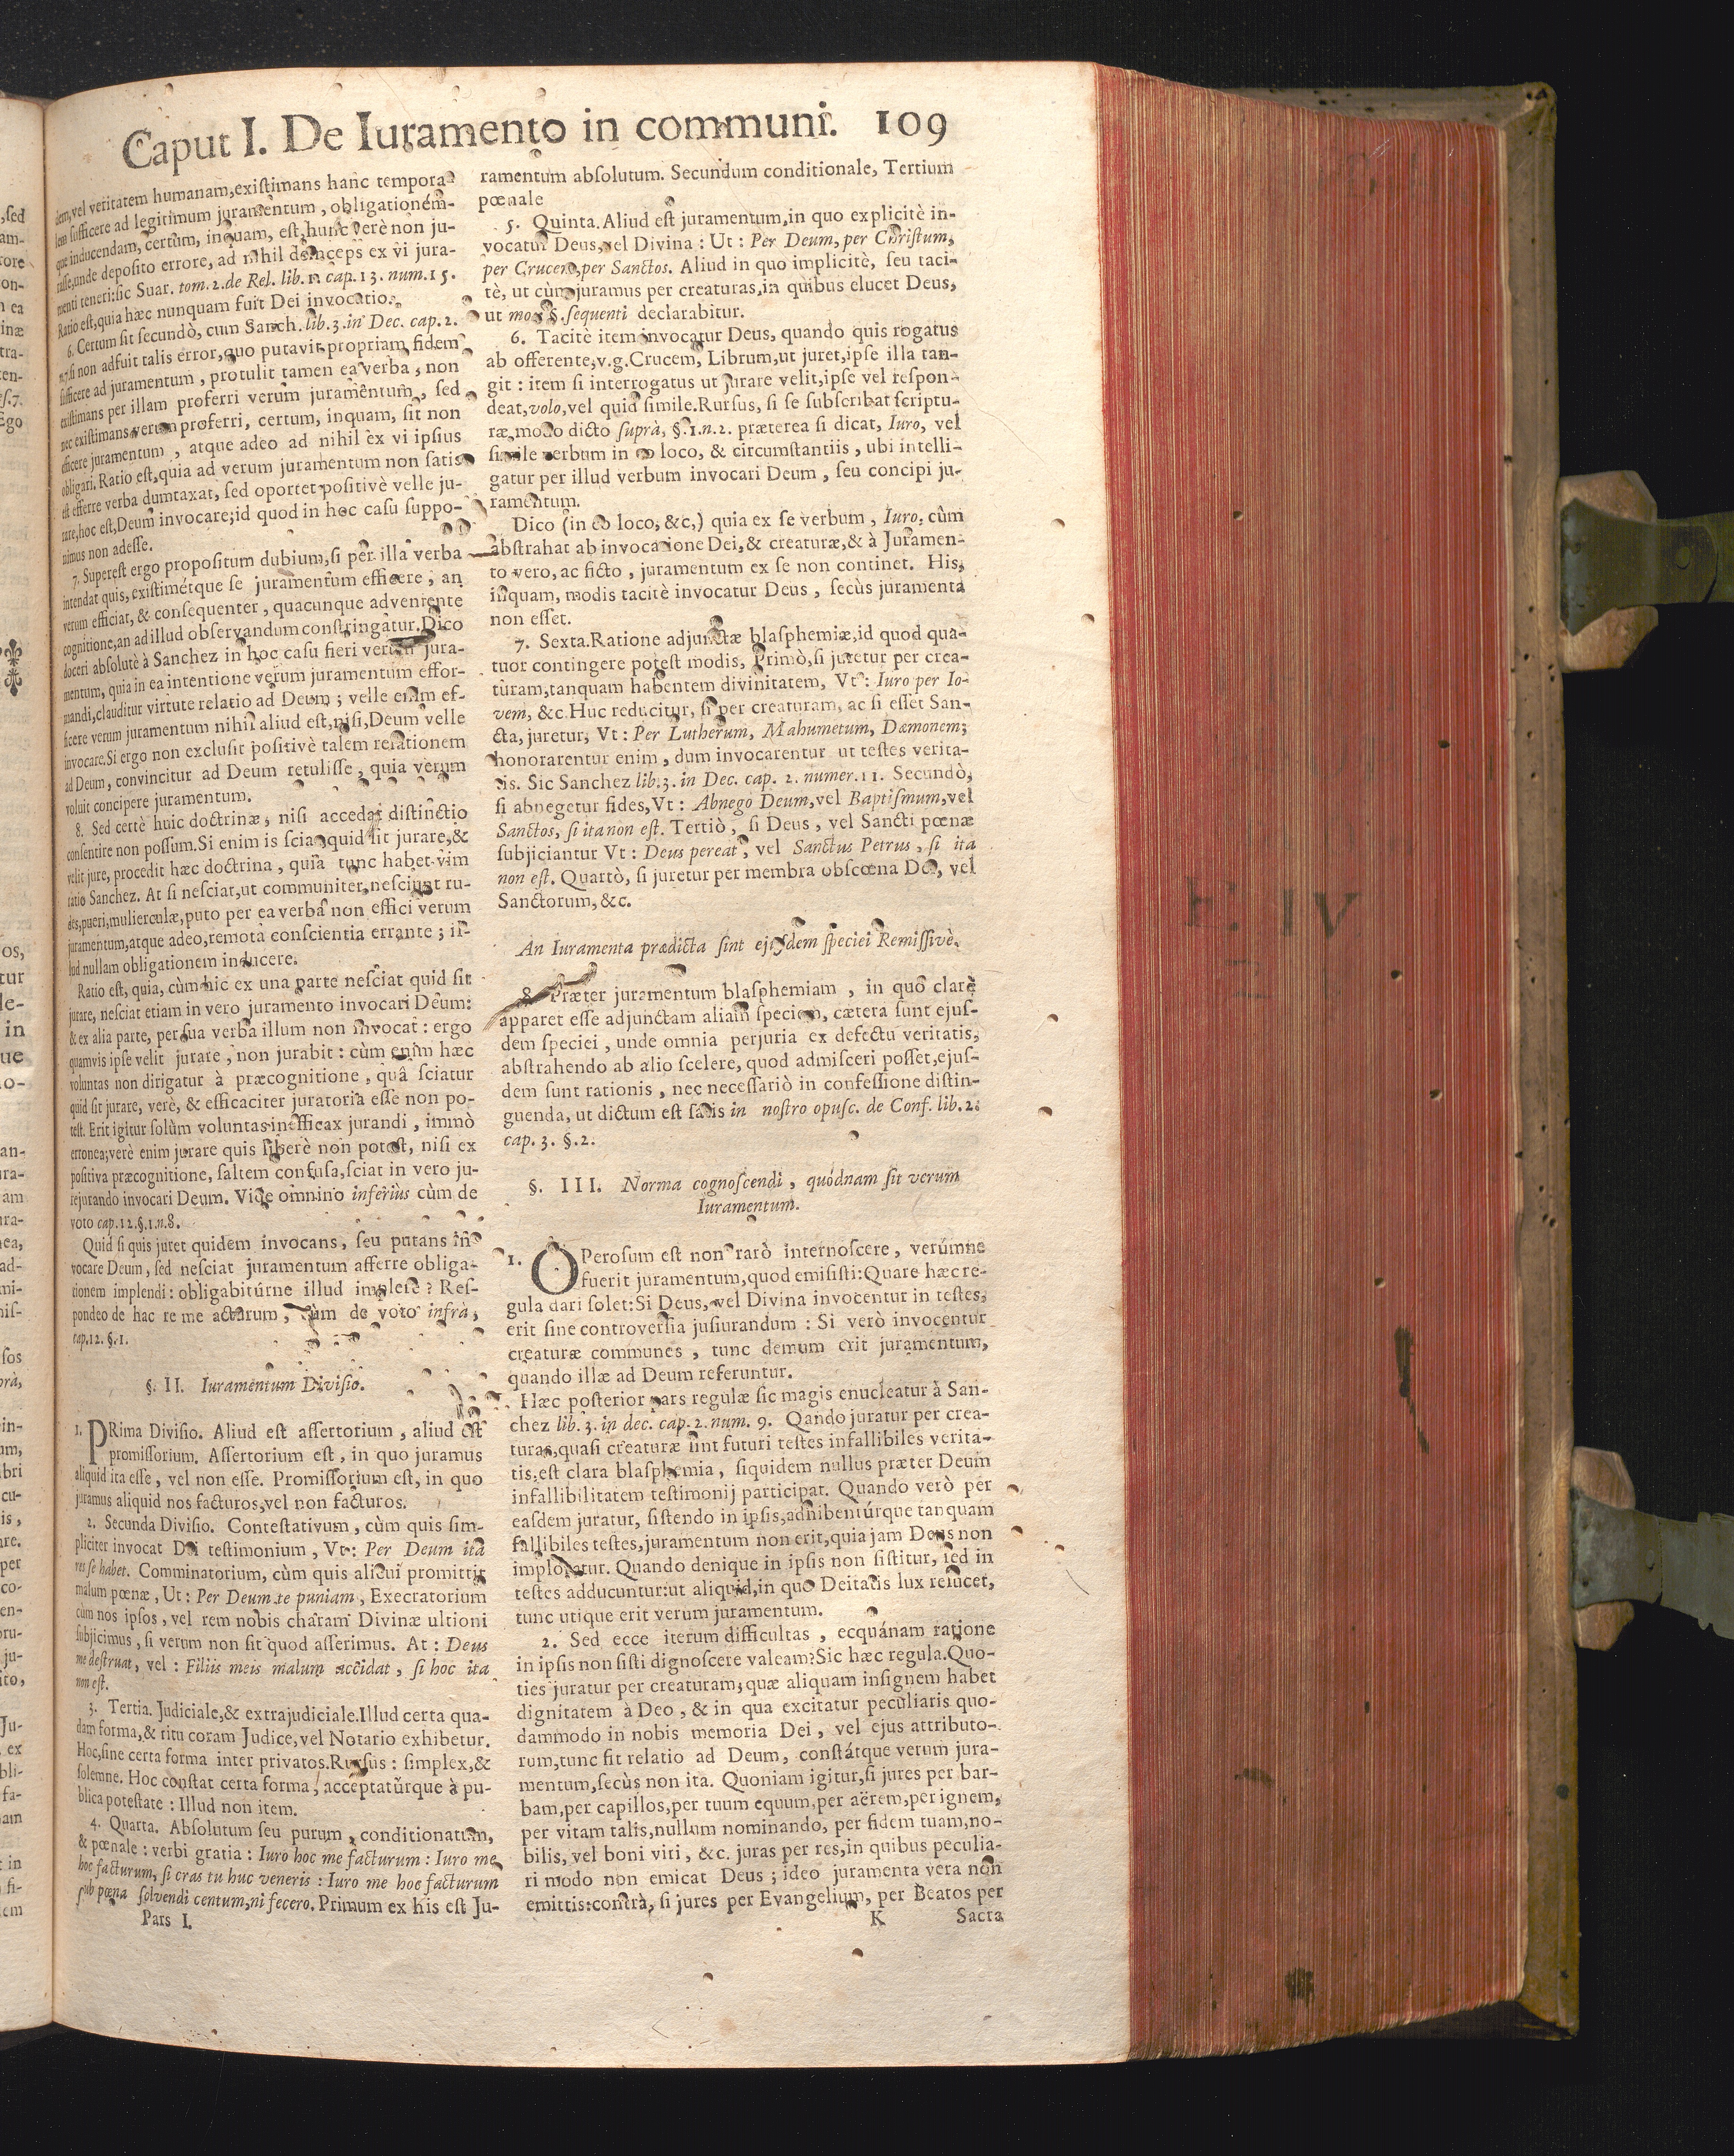 Caput I. De Iuramento in communi. 109
dem, vel veritatem humanam, existimans hanc tempora-
lem sufficere ad legitimum juramentum, obligationém-
que inducendam, certum, inquam, est, hunc verè non ju-
rasse, unde deposito errore, ad nihil deinceps ex vi jura-
menti teneri: sic Suar. tom. 2. de Rel. lib. 1. cap. 13. num. 15.
Ratio est, quia hæc nunquam fuit Dei invocatio.
6. Certum sit secundò, cum Sanch. lib. 3. in Dec. cap. 2.
n. 7. si non adfuit talis error, quo putavit propriam fidem
sufficere ad juramentum, protulit tamen ea verba, non
existimans per illam proferri verum juramentum, sed
nec existimans verum proferri, certum, inquam, sit non
efficere juramentum, atque adeo ad nihil ex vi ipsius
obligari. Ratio est, quia ad verum juramentum non satis
est efferre verba dumtaxat, sed oportet positivè velle ju-
rare, hoc est, Deum invocare; id quod in hoc casu suppo-
nimus non adesse.
7. Superest ergo propositum dubium, si per illa verba
intendat quis, existimétque se juramentum efficere, an
verum efficiat, & consequenter, quacunque adveniente
cognitione, an ad illud observandum constringatur. Dico
doceri absolutè à Sanchez in hoc casu fieri verum jura-
mentum, quia in ea intentione verum juramentum effor-
mandi, clauditur virtute relatio ad Deum; velle enim ef-
ficere verum juramentum nihil aliud est, nisi, Deum velle
invocare. Si ergo non exclusit positivè talem relationem
ad Deum, convincitur ad Deum retulisse, quia verum
voluit concipere juramentum.
8. Sed certè huic doctrinæ, nisi accedat distinctio
consentire non possum. Si enim is sciat quid sit jurare, &
velit jure, procedit hæc doctrina, quia tunc habet vim
ratio Sanchez. At si nesciat, ut communiter nesciunt ru-
des, pueri, mulierculæ, puto per ea verba non effici verum
juramentum, atque adeo, remota conscientia errante; il-
lud nullam obligationem inducere.
Ratio est, quia, cùm hic ex una parte nesciat quid sit
jurare, nesciat etiam in vero juramento invocari Deum:
& ex alia parte, per sua verba illum non invocat: ergo
quamvis ipse velit jurare, non jurabit: cùm enim hæc
voluntas non dirigatur à præcognitione, quâ sciatur
quid sit jurare, verè, & efficaciter juratoria esse non po-
test. Erit igitur solùm voluntas inefficax jurandi, immò
erronea; verè enim jurare quis liberè non potest, nisi ex
positiva præcognitione, saltem confusa, sciat in vero ju-
rejurando invocari Deum. Vide omnino inferius cùm de
voto cap. 12. §. 1. n. 8.
Quid si quis juret quidem invocans, seu putans in-
vocare Deum, sed nesciat juramentum afferre obliga-
tionem implendi: obligabitúrne illud implere? Res-
pondeo de hac re me acturum, cùm de voto infrà,
cap. 12. §. 1.
§. II. Iuramentum Divisio.
1. PRima Divisio. Aliud est assertorium, aliud est
promissorium. Assertorium est, in quo juramus
aliquid ita esse, vel non esse. Promissorium est, in quo
juramus aliquid nos facturos, vel non facturos.
2. Secunda Divisio. Contestativum, cùm quis sim-
pliciter invocat Dei testimonium, Vt: Per Deum ita
res se habet. Comminatorium, cùm quis alicui promittit
malum pœnæ, Ut: Per Deum te puniam, Execratorium
cùm nos ipsos, vel rem nobis charam Divinæ ultioni
subjicimus, si verum non sit quod asserimus. At: Deus
me destruat, vel: Filiis meis malum accidat, si hoc ita
non est.
3. Tertia. Judiciale, & extrajudiciale. Illud certa qua-
dam forma, & ritu coram Judice, vel Notario exhibetur.
Hoc, sine certa forma inter privatos. Rursus: simplex, &
solemne. Hoc constat certa forma, acceptatúrque à pu-
blica potestate: Illud non item.
4. Quarta. Absolutum seu purum, conditionatum,
& pœnale: verbi gratia: Iuro hoc me facturum: Iuro me
hoc facturum, si cras tu huc veneris: Iuro me hoc facturum
sub pœna solvendi centum, ni fecero. Primum ex his est Ju-
Pars I.
ramentum absolutum. Secundum conditionale, Tertium
pœnale
5. Quinta. Aliud est juramentum, in quo explicitè in-
vocatur Deus, vel Divina: Ut: Per Deum, per Christum,
per Crucem, per Sanctos. Aliud in quo implicitè, seu taci-
tè, ut cùm juramus per creaturas, in quibus elucet Deus,
ut mox §. sequenti declarabitur.
6. Tacitè item invocatur Deus, quando quis rogatus
ab offerente, v.g. Crucem, Librum, ut juret, ipse illa tan-
git: item si interrogatus ut jurare velit, ipse vel respon-
deat, volo, vel quid simile. Rursus, si se subscribat scriptu-
ræ, modo dicto suprà, §. 1. n. 2. præterea si dicat, Iuro, vel
simile verbum in eo loco, & circumstantiis, ubi intelli-
gatur per illud verbum invocari Deum, seu concipi ju-
ramentum.
Dico (in eo loco, &c,) quia ex se verbum, Iuro, cùm
abstrahat ab invocatione Dei, & creaturæ, & à Juramen-
to vero, ac ficto, juramentum ex se non continet. His,
inquam, modis tacitè invocatur Deus, secùs juramenta
non esset.
7. Sexta. Ratione adjunctæ blasphemiæ, id quod qua-
tuor contingere potest modis, Primò, si juretur per crea-
turam, tanquam habentem divinitatem, Vt: Iuro per Io-
vem, &c. Huc reducitur, si per creaturam, ac si esset San-
cta, juretur, Vt: Per Lutherum, Mahumetum, Dæmonem;
honorarentur enim, dum invocarentur ut testes verita-
tis. Sic Sanchez lib. 3. in Dec. cap. 2. numer. 11. Secundò,
si abnegetur fides, Vt: Abnego Deum, vel Baptismum, vel
Sanctos, si ita non est. Tertiò, si Deus, vel Sancti pœnæ
subjiciantur Vt: Deus pereat, vel Sanctus Petrus, si ita
non est. Quartò, si juretur per membra obscœna Dei, vel
Sanctorum, &c.
An Iuramenta prædicta sint ejusdem speciei Remissivè.
8. Præter juramentum blasphemiam, in quo clarè
apparet esse adjunctam aliam speciem, cætera sunt ejus-
dem speciei, unde omnia perjuria ex defectu veritatis,
abstrahendo ab alio scelere, quod admisceri posset, ejus-
dem sunt rationis, nec necessariò in confessione distin-
guenda, ut dictum est satis in nostro opusc. de Conf. lib. 2.
cap. 3. §. 2.
§. III. Norma cognoscendi, quódnam sit verum
Iuramentum.
1. OPerosum est non rarò internoscere, verúmne
fuerit juramentum, quod emisisti: Quare hæc re-
gula dari solet: Si Deus, vel Divina invocentur in testes,
erit sine controversia jusiurandum: Si verò invocentur
creaturæ communes, tunc demum erit juramentum,
quando illæ ad Deum referuntur.
Hæc posterior pars regulæ sic magis enucleatur à San-
chez lib. 3. in dec. cap. 2. num. 9. Qando juratur per crea-
turas, quasi creaturæ sint futuri testes infallibiles verita-
tis, est clara blasphemia, siquidem nullus præter Deum
infallibilitatem testimonij participat. Quando verò per
easdem juratur, sistendo in ipsis, adhibentúrque tanquam
fallibiles testes, juramentum non erit, quia jam Deus non
imploratur. Quando denique in ipsis non sistitur, sed in
testes adducuntur: ut aliquid, in quo Deitatis lux relucet,
tunc utique erit verum juramentum.
2. Sed ecce iterum difficultas, ecquánam ratione
in ipsis non sisti dignoscere valeam? Sic hæc regula. Quo-
ties juratur per creaturam, quæ aliquam insignem habet
dignitatem à Deo, & in qua excitatur peculiaris quo-
dammodo in nobis memoria Dei, vel ejus attributo-
rum, tunc fit relatio ad Deum, constátque verum jura-
mentum, secùs non ita. Quoniam igitur, si jures per bar-
bam, per capillos, per tuum equum, per aërem, per ignem,
per vitam talis, nullum nominando, per fidem tuam, no-
bilis, vel boni viri, &c. juras per res, in quibus peculia-
ri modo non emicat Deus; ideo juramenta vera non
emittis: contrà, si jures per Evangelium, per Beatos per
K Sacra